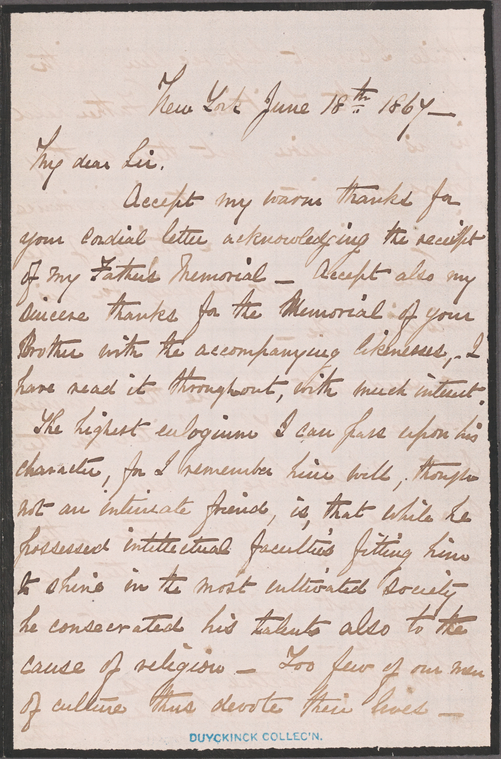 New York June 18th 1867—
My dear Sir.
Accept my warm thanks for
your cordial letter acknowledging the receipt
of my Father's Memorial — Accept also my
sincere thanks for the Memorial of your
Brother with the accompanying likenesses,— I
have read it throughout, with much interest.
The highest eulogium I can pass upon his
character, for I remember him well, though
not an intimate friend, is, that while he
possessed intellectual faculties fitting him
to shine in the most cultivated society
he consecrated his talents also to the
cause of religion — Too few of our men
of culture thus devote their lives —
DUYCKINCK COLLEC'N.